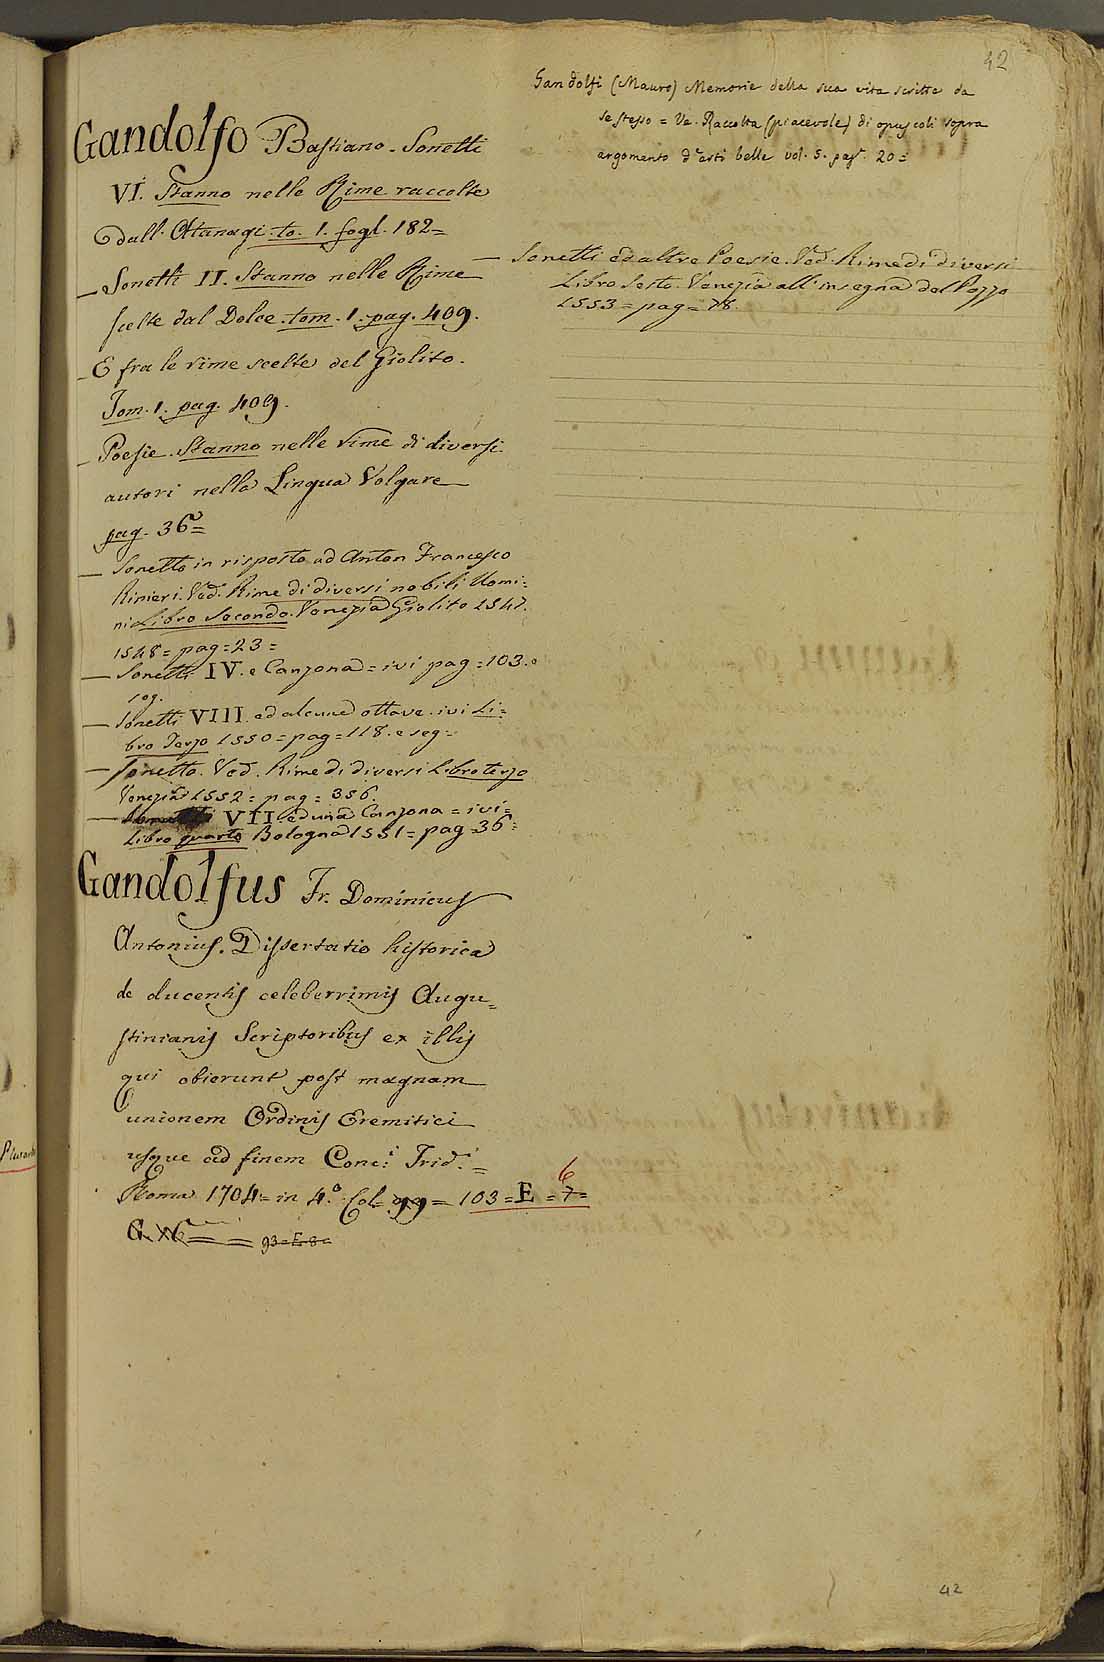 42
Gandolfo Bastiano. Sonetti
VI. Stanno nelle Rime raccolte
dall. Atanagi. to. 1. fogl. 182=
— Sonetti II. Stanno nelle Rime
scelte dal Dolce. tom. 1. pag. 409.
— E fra le rime scelte del Giolito.
Tom. 1. pag. 409.
— Poesie. Stanno nelle rime di diversi
autori nella Lingua Volgare
pag. 36=
— Sonetto in risposta ad Anton Francesco
Rinieri. Ved. Rime di diversi nobili Uomi=
ni Libro Secondo. Venezia Giolito 1547.
1548= pag=23=
— Sonetti IV. e Canzona= ivi pag=103. e
109.
— Sonetti VIII. ed alcune ottave. ivi Li=
bro Terzo 1550= pag=118. e seg=
— Sonetto. Ved. Rime di diversi Libro terzo
Venezia 1552= pag= 356.
— VII. ed una Canzona= ivi=
Libro quarto Bologna 1551= pag 36=
Gandolfus Fr. Dominicus
Antonius. Dissertatio historica
de ducentis celeberrimis Augu=
stinianis Scriptoribus ex illis
qui obierunt post magnam
unionem Ordinis Eremitici
usque ad finem Conc: Trid.
Roma 1704= in 4.° Col= 99= 103=E=7=
6
G. N. = = 93=E=8=
Gandolfi (Mauro) Memorie della sua vita scritte da
se stesso = Ve. Raccolta (piacevole) di opuscoli sopra
argomento d'arti belle vol. 5. pag. 20=
— Sonetti ed altre Poesie. Ved. Rime di diversi
Libro Sesto. Venezia all'insegna del Pozzo
1553= pag= 78.
Plutarch
42